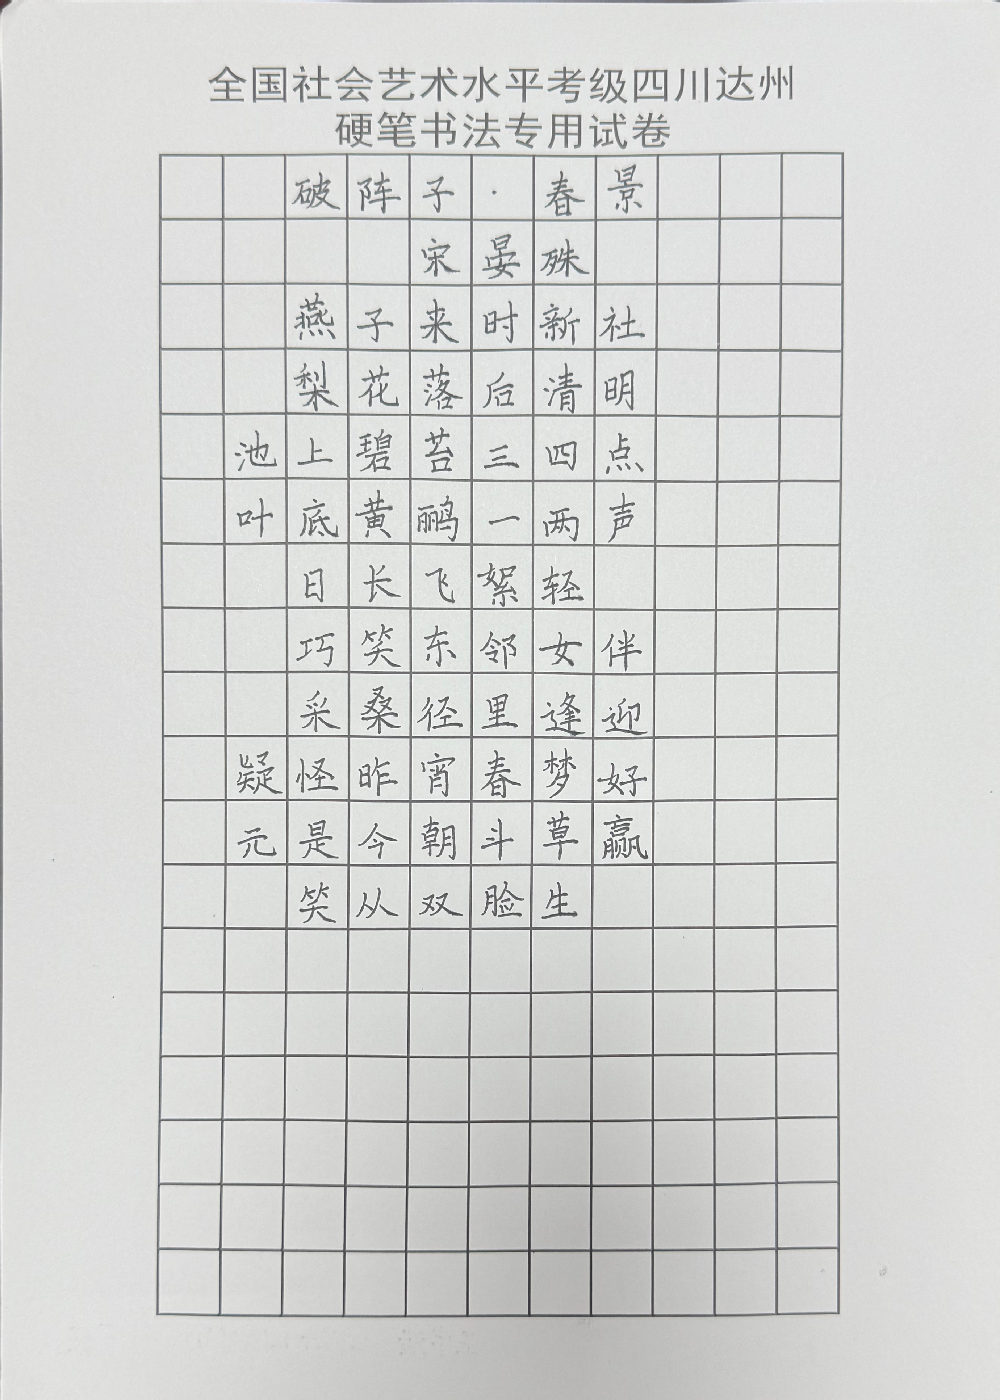 全国社会艺术水平考级四川达州
硬笔书法专用试卷
破阵子·春景
宋晏殊
燕子来时新社
梨花落后清明
池上碧苔三四点
叶底黄鹂一两声
日长飞絮轻
巧笑东邻女伴
采桑径里逢迎
疑怪昨宵春梦好
元是今朝斗草赢
笑从双脸生